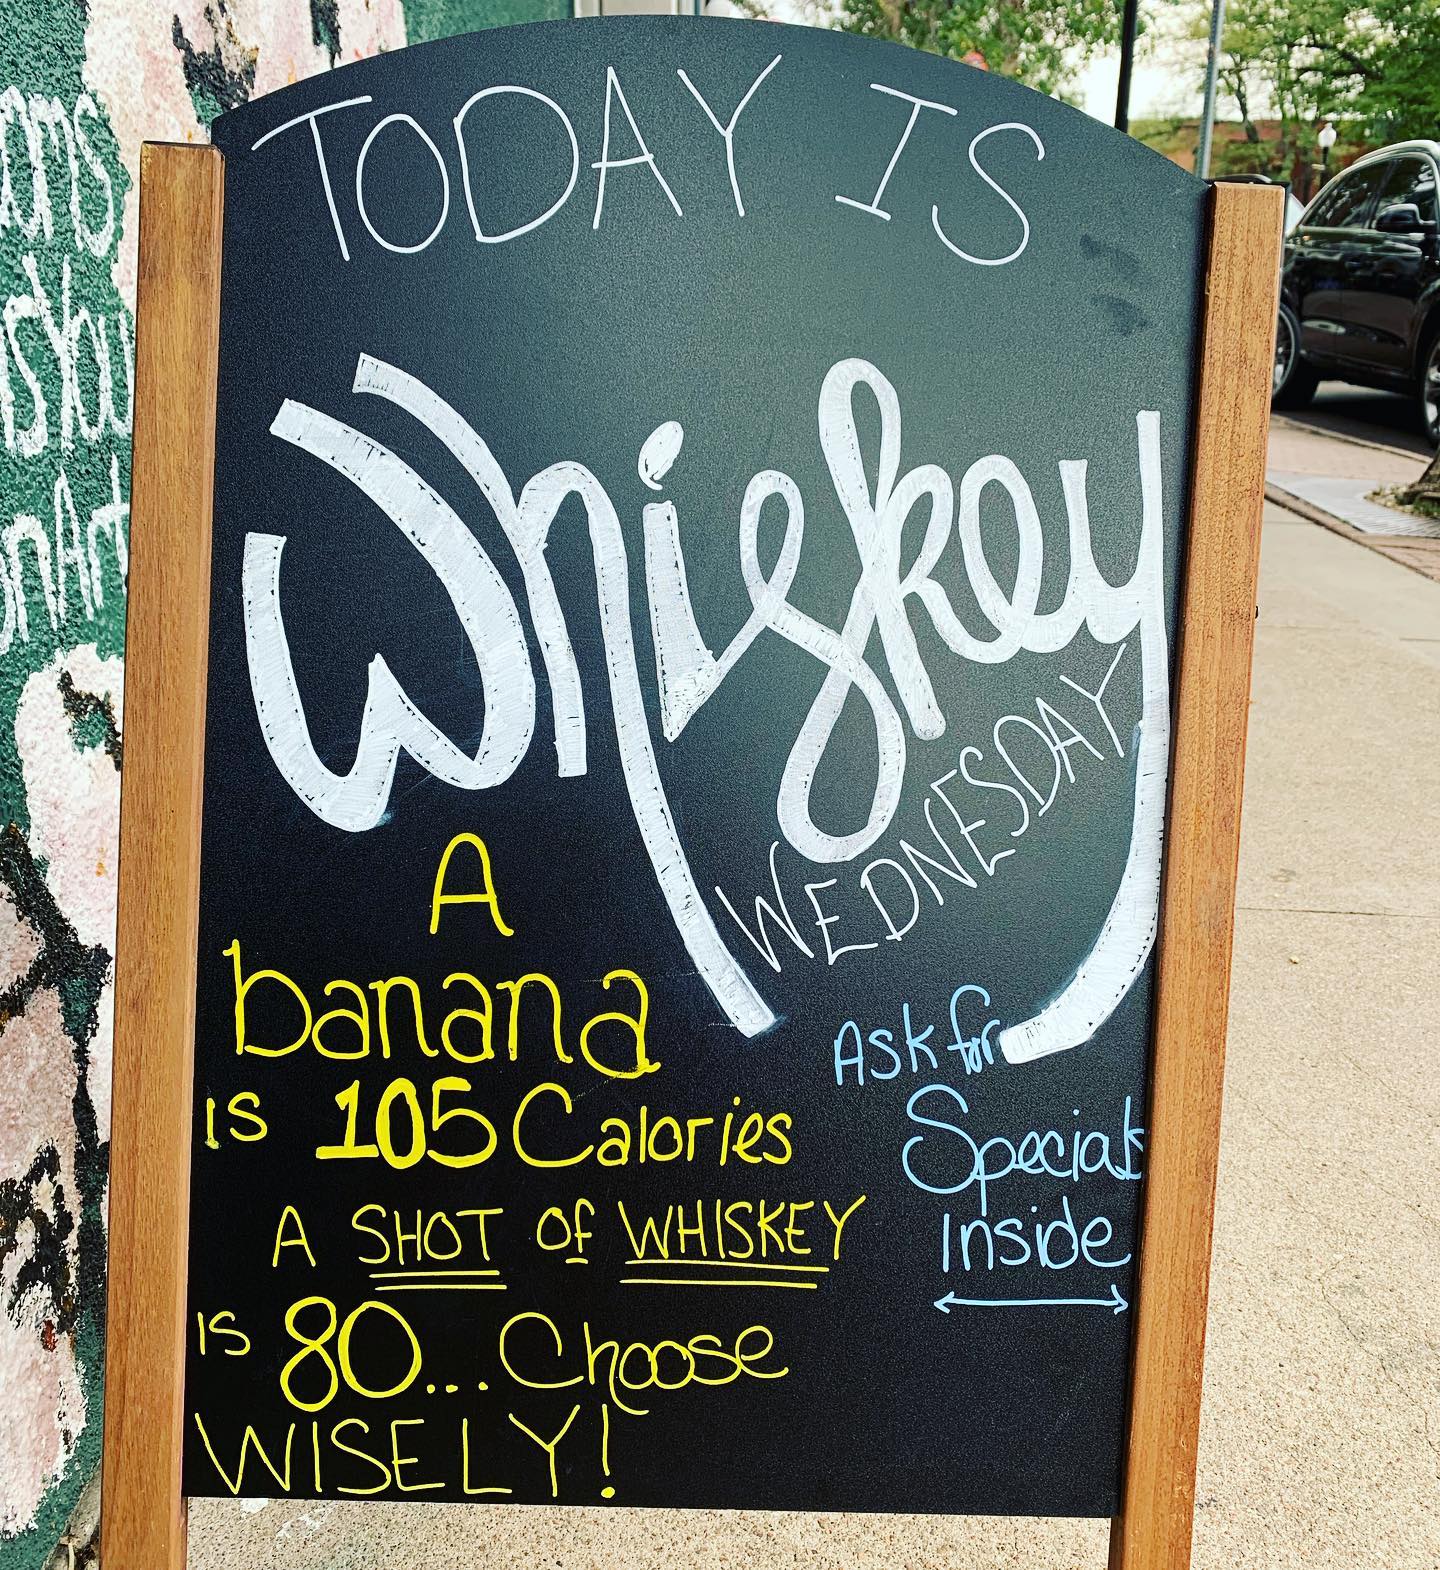 TODAY IS
Whiskey
WEDNESDAY
A
banana
is 105 Calories
A SHOT of WHISKEY
is 80... Choose
WISELY!
Ask for
Specials
Inside